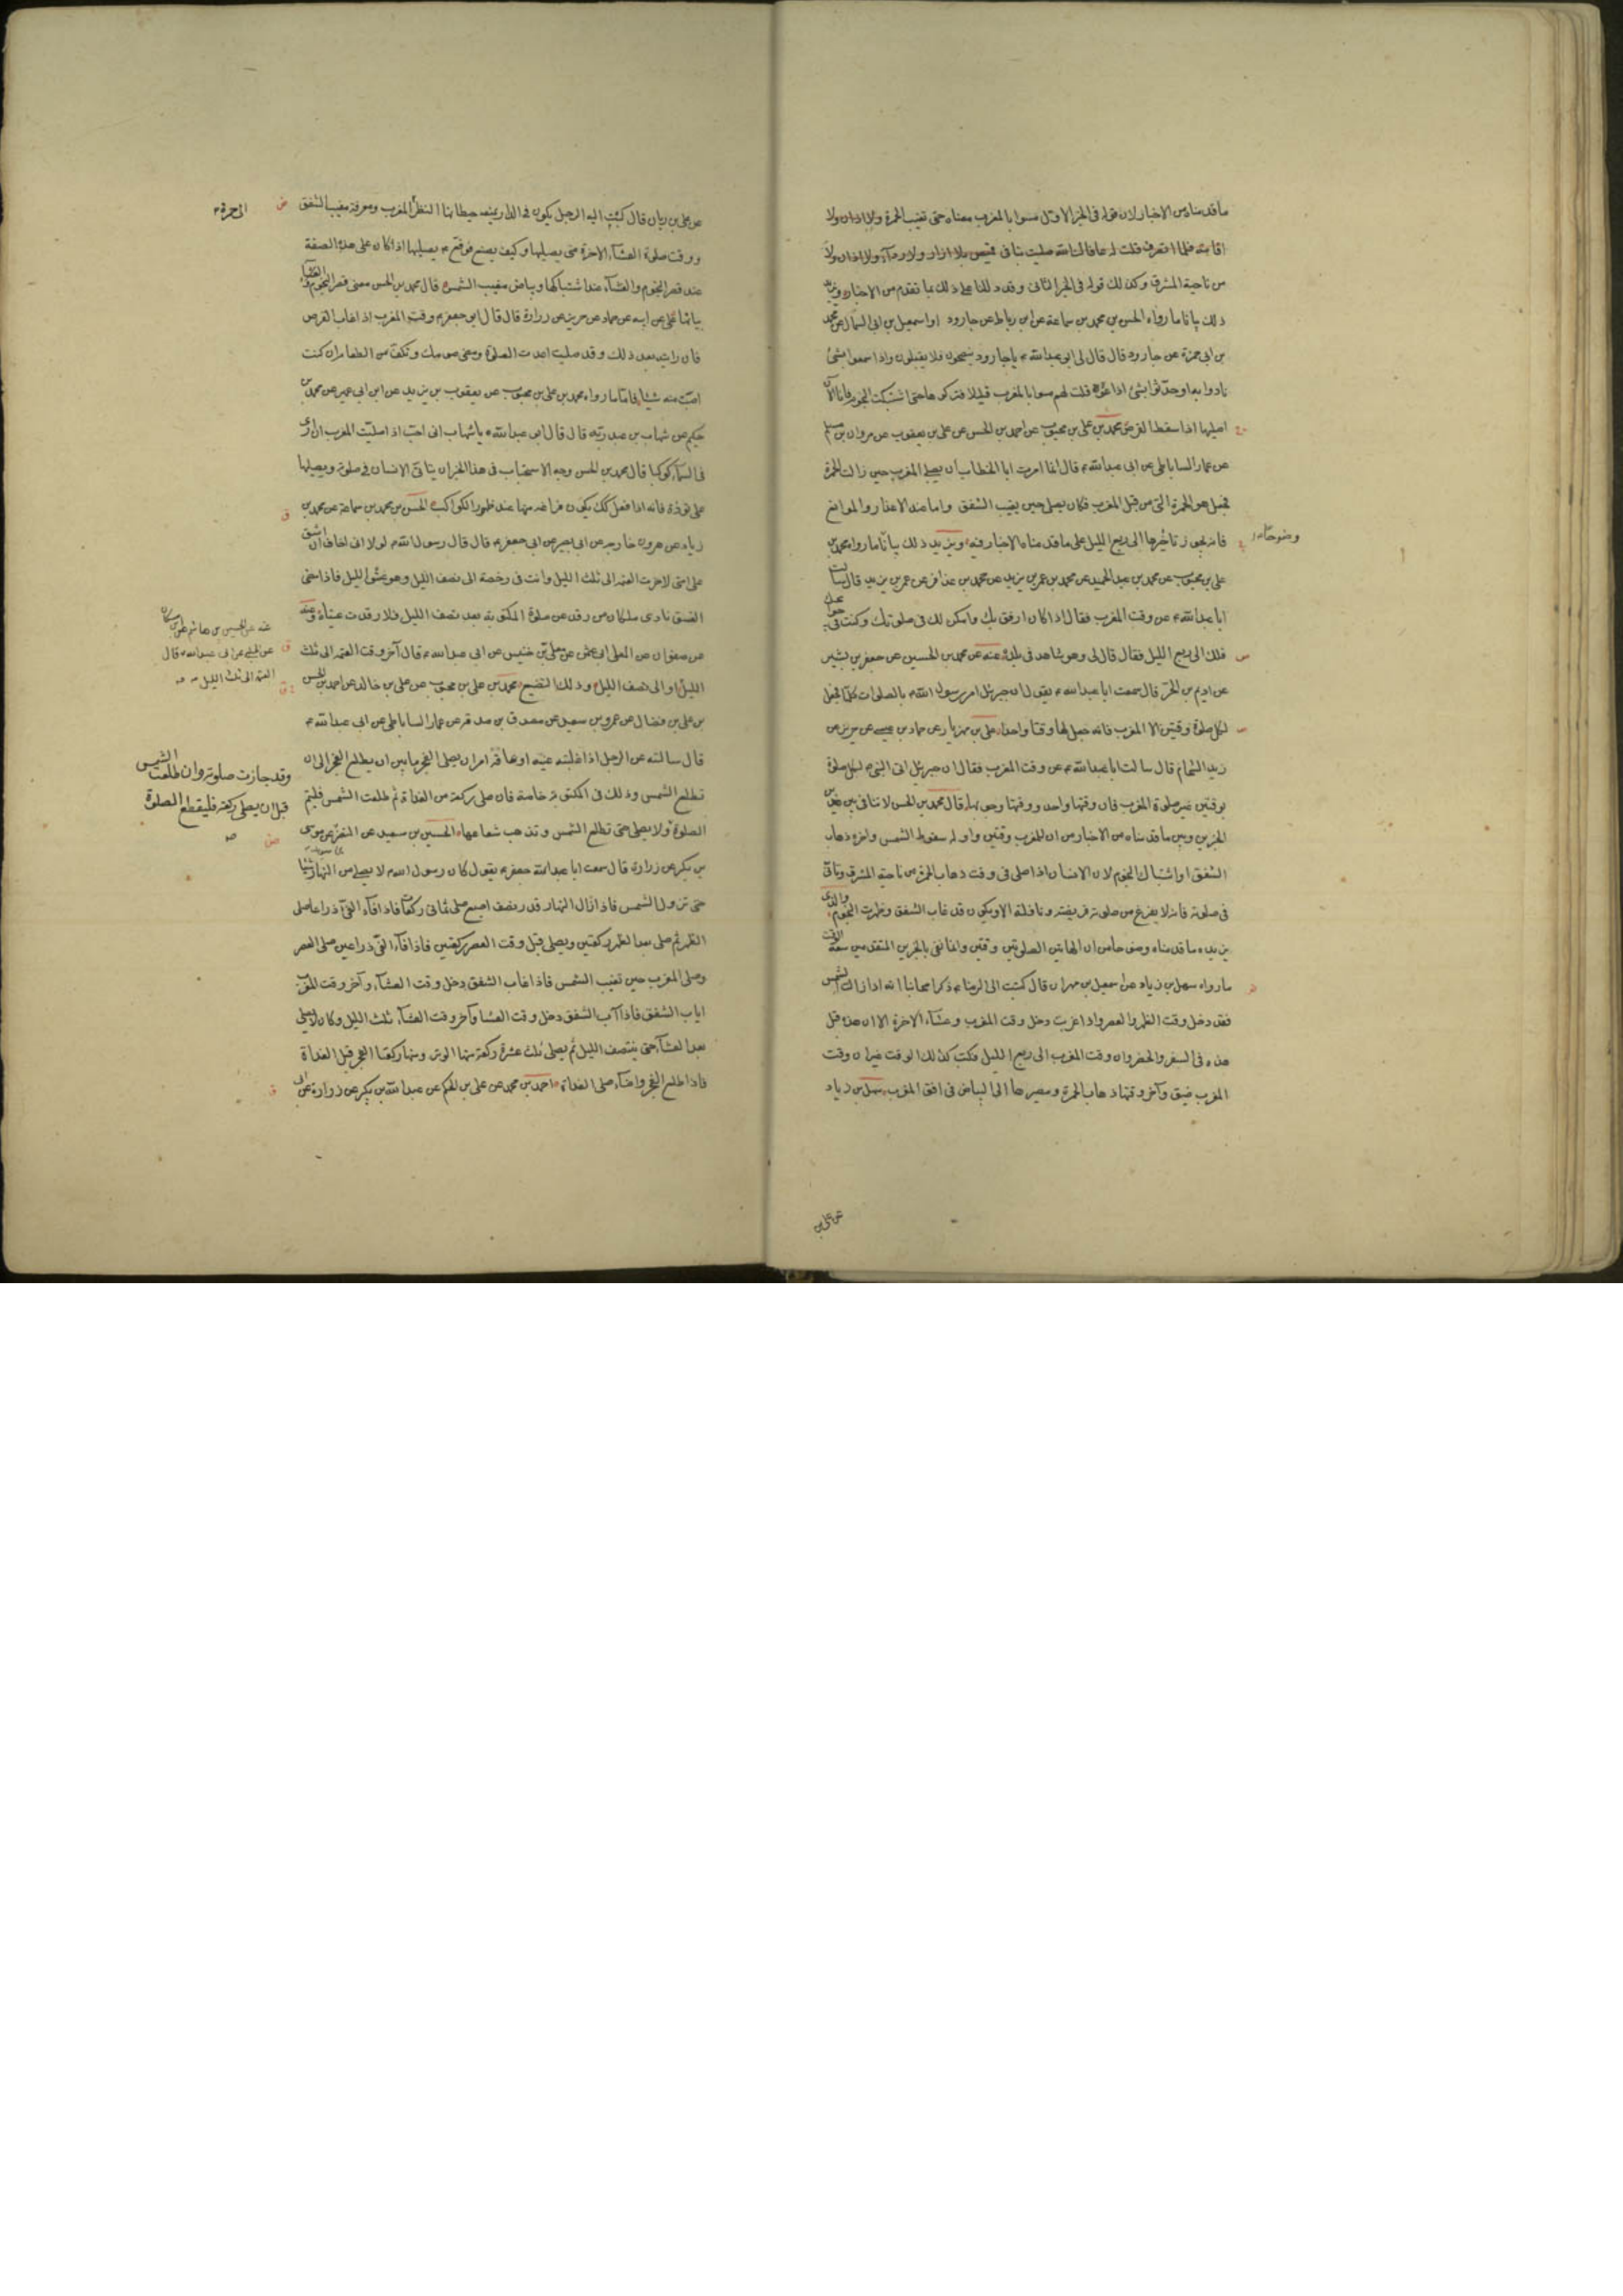 ما قدمناه من الاخبار لان قوله فى الخبر الاول مسوا بالمغرب معناه حتى تغيب الحمرة ولا اذان ولا
اقامة فلما انصرف قلت له عافاك الله صليت بنا فى قميص بلا ازار ولا رداء ولا اذان ولا
من ناحية المشرق وكذلك قوله فى الخبر الثانى وقد دللنا على ذلك بما تقدم من الاخبار ويزيد
ذلك بيانا ما رواه الحسن بن محمد بن سماعة عن ابن رباط عن جارود او اسمعيل بن ابى السمال عن محمد
بن ابى حمزة عن جارود قال قال لى ابو عبدالله ع يا جارود ينصحون فلا يقبلون واذا سمعوا بشئ
نادوا به او حدثوا بشئ اذاعوه قلت لهم مسوا بالمغرب قليلا فتركوها حتى اشتبكت النجوم فانا الآن
اصليها اذا سقط القرص محمد بن على بن محبوب عن احمد بن الحسن عن على بن يعقوب عن مروان بن مسلم
عن عمار الساباطى عن ابى عبدالله ع قال انما امرت ابا الخطاب ان يصلى المغرب حين زالت الحمرة
فجعل هو الحمرة التى من قبل المغرب فكان يصلى حين يغيب الشفق واما عند الاعذار والموانع
فانه يجوز تاخيرها الى ربع الليل على ما قدمناه الاخبار فيه ويزيد ذلك بيانا ما رواه محمد بن
على بن محبوب عن محمد بن عبد الحميد عن محمد بن عمر بن يزيد عن محمد بن عذافر عن عمر بن يزيد قال سالت
ابا عبدالله ع عن وقت المغرب فقال اذا كان ارفق بك وامكن لك فى صلوتك وكنت فى حوائجك
فلك الى ربع الليل فقال قال لى وهو شاهد فى بلده عنه عن محمد بن الحسين عن جعفر بن بشير
عن اديم بن الحر قال سمعت ابا عبدالله ع يقول ان جبرئل امر رسول الله ص بالصلوات كلها فجعل
لكل صلوة وقتين الا المغرب فانه جعل لها وقتا واحدا على بن مهزيار عن حماد بن عيسى عن حريز عن
زيد الشحام قال سالت ابا عبدالله ع عن وقت المغرب فقال ان جبرئل اتى النبى ص لكل صلوة
بوقتين غير صلوة المغرب فان وقتها واحد ووقتها وجوبها قال محمد بن الحسن لا تنافى بين هذين
الخبرين وبين ما قدمناه من الاخبار من ان للمغرب وقتين واوله سقوط الشمس واخره ذهاب
الشفق او اشتباك النجوم لان الانسان اذا صلى فى وقت ذهاب الحمرة من ناحية المشرق وتانى
فى صلوته فانه لا يفرغ من صلوته فريضته ونافلته الا ويكون قد غاب الشفق وظهرت النجوم والذى
يزيده ما قدمناه وضوحا من ان لهاتين الصلوتين وقتين وانما نفى بالخبرين المتقدمين سعة الوقت
ما رواه سهل بن زياد عن اسمعيل بن مهران قال كتبت الى الرضا ع ذكر اصحابنا انه اذا زالت الشمس
فقد دخل وقت الظهر والعصر واذا غربت دخل وقت المغرب وعشاء الاخرة الا ان هذه قبل
هذه فى السفر والحضر وان وقت المغرب الى ربع الليل فكتب كذلك الوقت غير ان وقت
المغرب ضيق وآخر وقتها ذهاب الحمرة ومصيرها الى البياض فى افق المغرب سهل بن زياد
وضوحا
عن على بن
عن على بن ريان قال كتبت اليه الرجل يكون فى الدار يمنعه حيطانها النظر المغرب ومعرفة مغيب الشفق
ووقت صلوة العشاء الاخرة متى يصليها وكيف يصنع فوقع ع يصليها اذا كان على هذه الصفة
عند قصر النجوم والعشاء عند اشتباكها وبياض مغيب الشمس قال محمد بن الحسن معنى قصر النجوم
بيانها على عن ابيه عن حماد عن حريز عن زرارة قال قال ابو جعفر ع وقت المغرب اذا غاب القرص
فان رايته بعد ذلك وقد صليت اعدت الصلوة ومضى صومك وتكف من الطعام ان كنت
اصبت منه شيئا فاما ما رواه محمد بن على بن محبوب عن يعقوب بن يزيد عن ابن ابى عمير عن محمد بن
حكيم عن شهاب بن عبد ربه قال قال ابو عبدالله ع يا شهاب انى احب اذا صليت المغرب ان ارى
فى السماء كوكبا قال محمد بن الحسن وجه الاستحباب فى هذا الخبر ان يتانى الانسان فى صلوته ويصليها
على تؤدة فانه اذا فعل كذلك يكون فراغه منها عند ظهور الكواكب الحسن بن محمد بن سماعة عن محمد بن
زياد عن هرون خارجه عن ابى بصير عن ابى جعفر ع قال قال رسول الله ص لولا انى اخاف ان اشق
على امتى لاخرت العتمة الى ثلث الليل وانت فى رخصة الى نصف الليل وهو غسق الليل فاذا مضى
الغسق نادى ملكان من رقد عن صلوة المكتوبة بعد نصف الليل فلا رقدت عيناه وعنه
عن صفوان عن المعلى ابى عثمن عن معلى بن خنيس عن ابى عبدالله ع قال آخر وقت العتمه الى ثلث
الليل او الى نصف الليل وذلك التضييع محمد بن على بن محبوب عن على بن خالد عن احمد بن الحسن
بن على بن فضال عن عمرو بن سعيد عن مصدق بن صدقه عن عمار الساباطى عن ابى عبدالله ع
قال سالته عن الرجل اذا غلبته عينه او عاقه امر ان يصلى الفجر ما بين ان يطلع الفجر الى ان
تطلع الشمس وذلك فى المكتوبة خاصة فان صلى ركعة من الغداة ثم طلعت الشمس فليتم
الصلوة ولا يصلى حتى تطلع الشمس وتذهب شعاعها الحسين بن سعيد عن النضر عن موسى
بن بكر عن زرارة قال سمعت ابا عبدالله جعفر ع يقول كان رسول الله ص لا يصلى من النهار شيئا
حتى تزول الشمس فاذا زال النهار قدر نصف اصبع صلى ثمانى ركعات فاذا فاء الفئ ذراعا صلى
الظهر ثم صلى بعد الظهر ركعتين ويصلى قبل وقت العصر ركعتين فاذا فاء الفئ ذراعين صلى العصر
وصلى المغرب حين تغيب الشمس فاذا غاب الشفق دخل وقت العشاء وآخر وقت المغرب
اياب الشفق فاذا آب الشفق دخل وقت العشا وآخر وقت العشاء ثلث الليل وكان لا يصلى
بعد العشاء حتى ينتصف الليل ثم يصلى ثلث عشرة ركعة منها الوتر ومنها ركعتا الفجر قبل الغداة
فاذا طلع الفجر واضاء صلى الغداة احمد بن محمد عن على بن الحكم عن عبدالله بن بكير عن زرارة عن ابى
الى حمرة
عنه عن الحسين بن هاشم عن ابن مسكان
عن الحلبى عن ابى عبدالله ع قال
العتمه الى ثلث الليل
وقد جازت صلوته وان طلعت الشمس
قبل ان يصلى ركعة فليقطع الصلوة